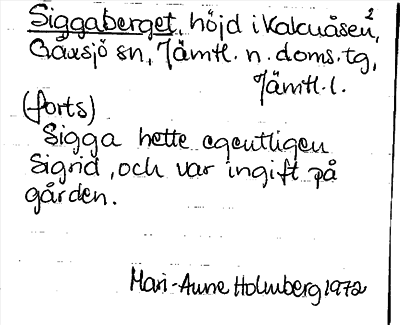 Siggaberget, höjd i Kakuåsen, 2
Gåxsjö sn, Jämtl. n. doms. tg,
Jämtl. l.
(forts)
Sigga hette egentligen
Sigrid, och var ingift på
gården.
Mari-Anne Holmberg 1972